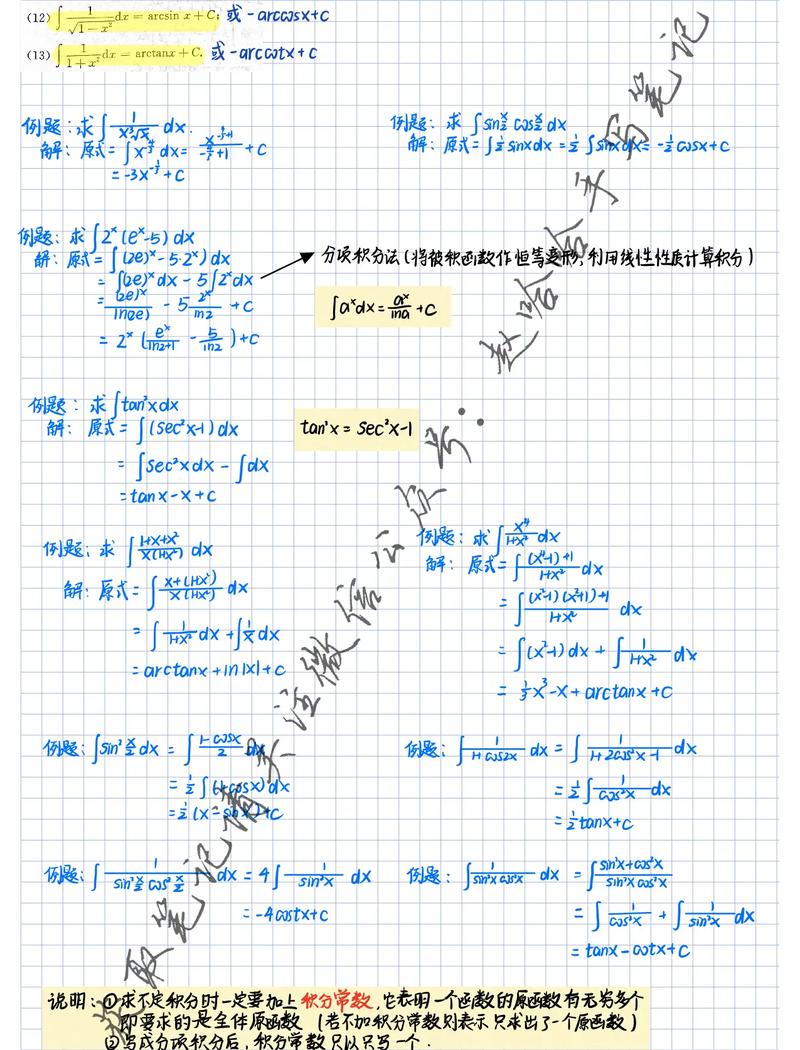 (12) ∫ 1/√(1−x²) dx = arcsin x + C; 或 -arccosx+c
(13) ∫ 1/(1+x²) dx = arctanx + C. 或 -arccotx+c
例题:求∫ 1/(x³√x) dx.
解:原式=∫x^(-4/3) dx= x^(-4/3+1)/(-4/3+1) +c
=-3x^(-1/3)+c
例题:求 ∫sin x/2 cos x/2 dx
解:原式=∫½ sinxdx =½ ∫sinxdx= -½ cosx+c
例题:求∫2^x (e^x-5) dx
解:原式=∫((2e)^x-5·2^x) dx
= ∫(2e)^x dx - 5∫2^x dx
= (2e)^x/ln(2e) - 5 2^x/ln2 +c
= 2^x (e^x/(ln2+1) - 5/ln2)+c
分项积分法(将被积函数作恒等变形,利用线性性质计算积分)
∫a^x dx= a^x/lna +c
例题:求∫tan²xdx
解:原式=∫(sec²x-1) dx
= ∫sec²xdx - ∫dx
=tanx-x+c
tan²x = sec²x-1
例题:求 ∫ (1+x+x²)/(x(1+x²)) dx
解:原式=∫ (x+(1+x²))/(x(1+x²)) dx
= ∫ 1/(1+x²) dx +∫ 1/x dx
=arctanx+ln|x|+c
例题:求∫ x⁴/(1+x²) dx
解:原式=∫ ((x⁴-1)+1)/(1+x²) dx
=∫ ((x²-1)(x²+1)+1)/(1+x²) dx
= ∫(x²-1) dx + ∫ 1/(1+x²) dx
= ⅓x³-x+arctanx+c
例题:∫sin² x/2 dx = ∫ (1-cosx)/2 dx
= ½ ∫(1-cosx)dx
=½ (x-sinx)+c
例题:∫ 1/(1+cos2x) dx = ∫ 1/(1+2cos²x-1) dx
=½∫ 1/cos²x dx
=½tanx+c
例题:∫ 1/(sin² x/2 cos² x/2) dx = 4∫ 1/sin²x dx
=-4costx+c
例题:∫ 1/(sin²x cos²x) dx = ∫ (sin²x+cos²x)/(sin²x cos²x)
= ∫ 1/cos²x + ∫ 1/sin²x dx
= tanx-cotx+c
说明:①求不定积分时一定要加上积分常数,它表明一个函数的原函数有无穷多个
即要求的是全体原函数 (若不加积分常数则表示只求出了一个原函数)
②写成分项积分后,积分常数只以只写一个.
获取笔记请关注微信公众号:赵哈哈手写笔记